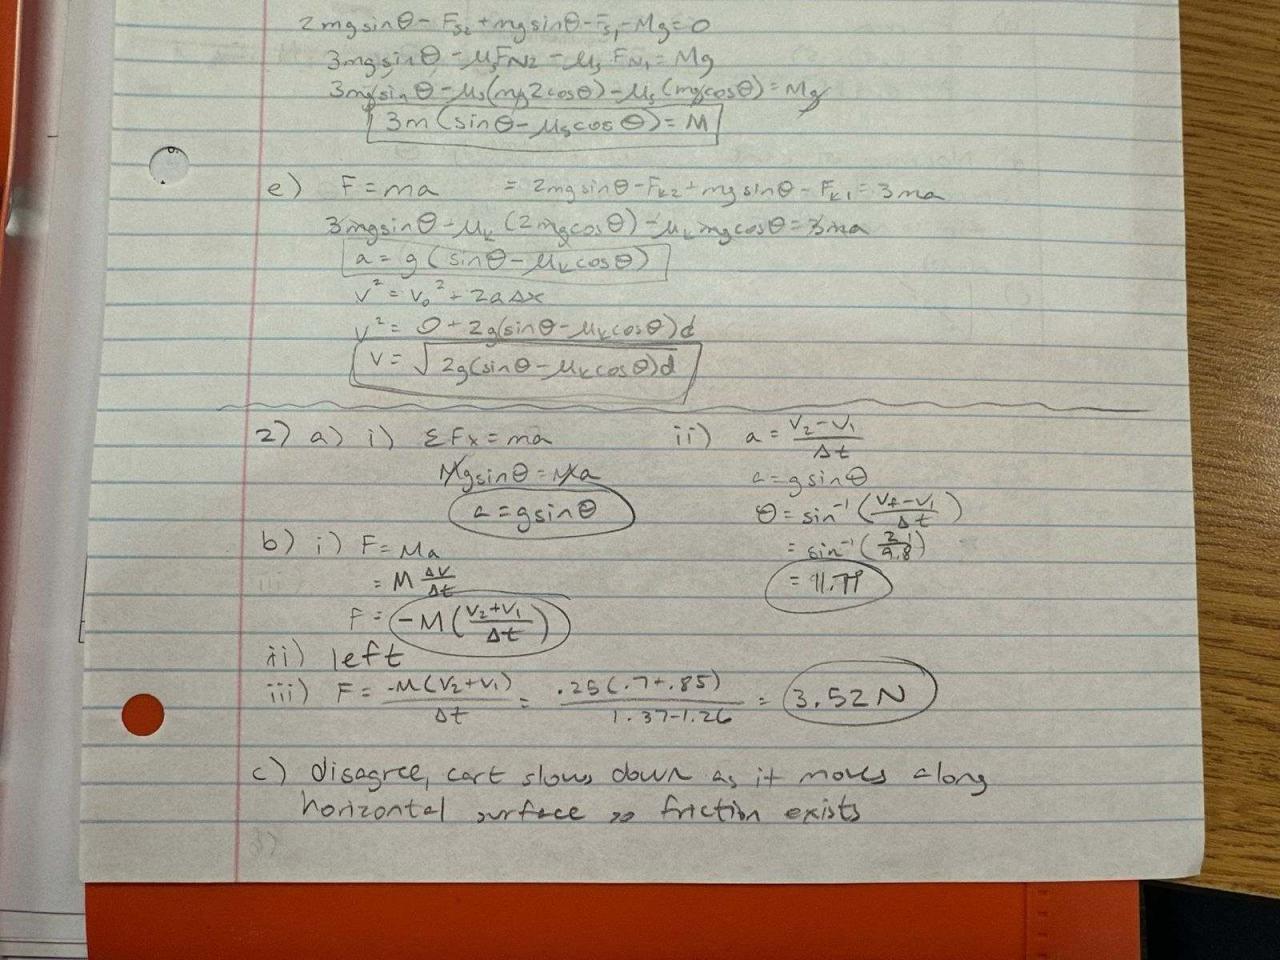 2mgsinθ - Fs2 + mgsinθ - Fs1 - Mg = 0
3mgsinθ - μsFN2 - μs FN1 = Mg
3mgsinθ - μs(mg2cosθ) - μs(mgcosθ) = Mg
3m(sinθ - μscosθ) = M
e) F = ma = 2mgsinθ - Fk2 + mgsinθ - Fk1 = 3ma
3mgsinθ - μk(2mgcosθ) - μkmgcosθ = 3ma
a = g(sinθ - μkcosθ)
v² = v₀² + 2aΔx
v² = 0 + 2g(sinθ - μkcosθ)d
v = √2g(sinθ - μkcosθ)d
2) a) i) ΣFx = ma
Mgsinθ = Ma
a = gsinθ
ii) a = (V2 - V1)/Δt
a = gsinθ
θ = sin⁻¹((Vf - V1)/Δt)
= sin⁻¹(2/9.8)
= 11.77
b) i) F = Ma
= M ΔV/Δt
F = -M((V2 + V1)/Δt)
ii) left
iii) F = -M(V2 + V1)/Δt = .25(.7 + .85)/(1.37 - 1.26) = 3.52 N
c) disagree, cart slows down as it moves along
horizontal surface so friction exists
3)